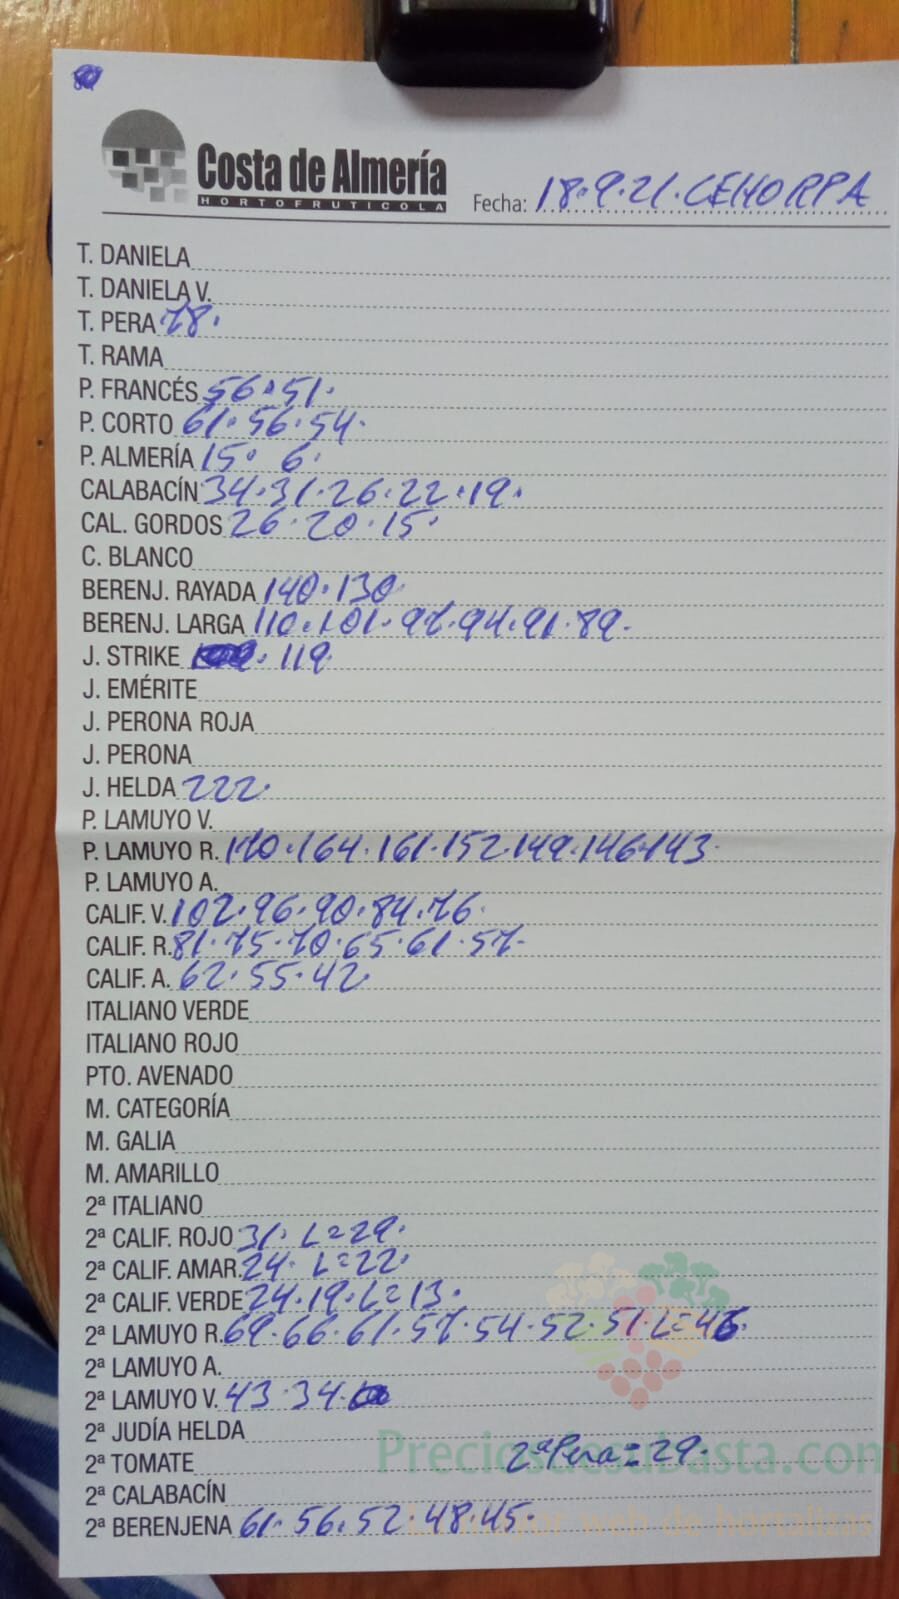 Costa de Almería
HORTOFRUTICOLA
Fecha: 18.9.21. CEHORPA
T. DANIELA
T. DANIELA V.
T. PERA 78.
T. RAMA
P. FRANCÉS 56.51.
P. CORTO 61.56.54.
P. ALMERÍA 15. 6.
CALABACÍN 34.31.26.22.19.
CAL. GORDOS 26.20.15.
C. BLANCO
BERENJ. RAYADA 140.130
BERENJ. LARGA 110.101.97.94.91.89.
J. STRIKE 119
J. EMÉRITE
J. PERONA ROJA
J. PERONA
J. HELDA 222.
P. LAMUYO V.
P. LAMUYO R. 170.164.161.152.149.146.143.
P. LAMUYO A.
CALIF. V. 102.96.90.84.76.
CALIF. R. 81.75.70.65.61.57.
CALIF. A. 62.55.42
ITALIANO VERDE
ITALIANO ROJO
PTO. AVENADO
M. CATEGORÍA
M. GALIA
M. AMARILLO
2ª ITALIANO
2ª CALIF. ROJO 31. L=29.
2ª CALIF. AMAR. 24. L=22.
2ª CALIF. VERDE 24.19.L=13.
2ª LAMUYO R. 69.66.61.57.54.52.51.L=46.
2ª LAMUYO A.
2ª LAMUYO V. 43.34.
2ª JUDÍA HELDA
2ª TOMATE 2ª Pera=29.
Preciosdesubasta.com
2ª CALABACÍN
2ª BERENJENA 61.56.52.48.45.
web de hortalizas